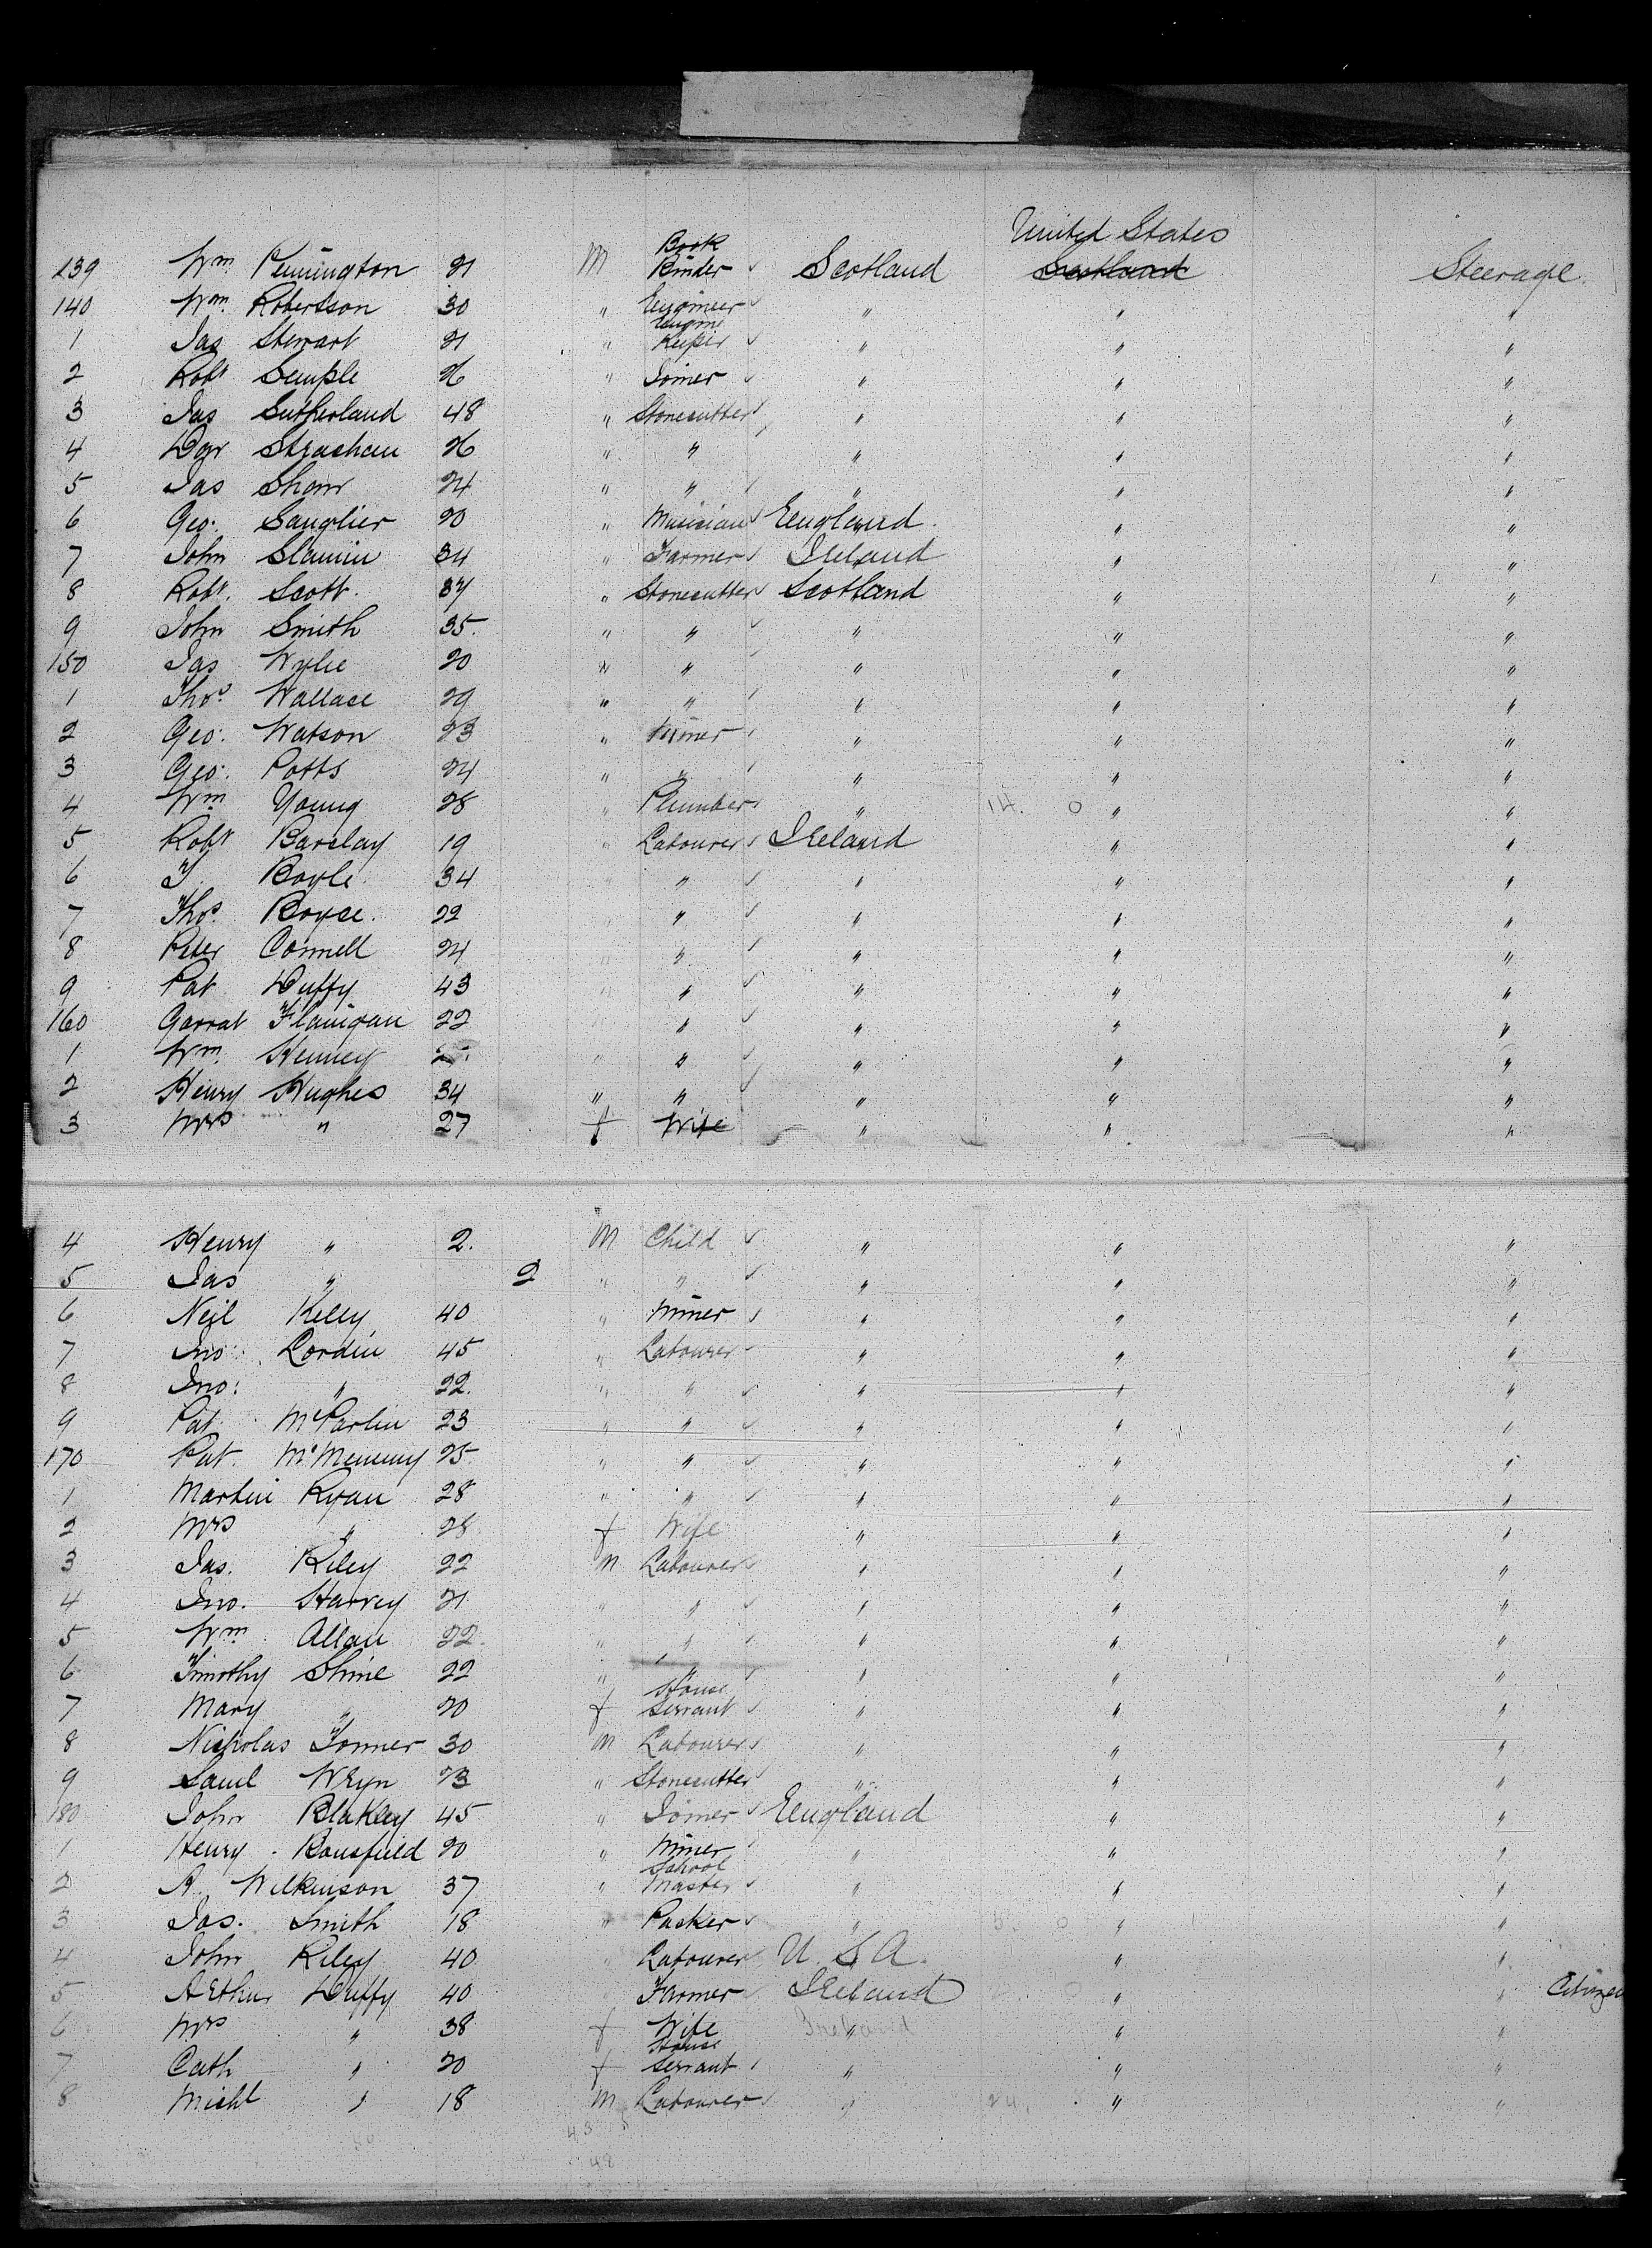 United States
139 Wm. Pennington 21 M Book Binder Scotland Scotland Steerage
140 Wm. Robertson 30 " Engineer " " "
1 Jas Stewart 21 " Engine Keeper " " "
2 Robt Semple 26 " Joiner " " "
3 Jas Sutherland 48 " Stonecutter " " "
4 Strachan 26 " " " " "
5 Jas Shaw 24 " " " " "
6 Geo. Sanglier 20 " Musician England " "
7 John Slamin 34 " Farmer Ireland " "
8 Robt. Scott 37 " Stonecutter Scotland " "
9 John Smith 35 " " " " "
150 Jas Wylie 20 " " " " "
1 Thos. Wallace 29 " " " " "
2 Geo. Watson 23 " Miner " " "
3 Geo. Potts 24 " " " " "
4 Wm Young 28 " Plumber " 14. 0 " "
5 Robt Barclay 19 " Labourer Ireland " "
6 Boyle 34 " " " " "
7 Thos. Boyce 22 " " " "
8 Peter Connell 24 " " " " "
9 Pat Duffy 43 " " " " "
160 Garrat Flanigan 22 " " " "
1 Wm. Henney " " " " "
2 Henry Hughes 34 " " " " "
3 Mrs " 27 f Wife " " "
4 Henry " 2. M Child " " "
5 Jas " 2 " " " " "
6 Neil Kelly 40 " Miner " " "
7 Jno. Lordin 45 " Labourer " " "
8 Jno: " 22. " " " " "
9 Pat McParlin 23 " " " " "
170 Pat. McMenemy 25 " " " " "
1 Martin Ryan 28 " " " " "
2 Mrs " 28 f Wife " " "
3 Jas. Riley 22 M Labourer " " "
4 Jno. Harvey 21 " " " " "
5 Wm. Allan 22. " " " " "
6 Timothy Shine 22 " " " " "
7 Mary " 20 f House Servant " " "
8 Nicholas Tonner 30 M Labourer " " "
9 Saml Wryn 23 " Stonecutter " " "
180 John Blakley 45 " Joiner England " "
1 Henry Bousfield 20 " Miner " " "
2 A. Wilkinson 37 " School Master " " "
3 Jas. Smith 18 " Packer " 0 " "
4 John Riley 40 " Labourer U S A. " "
5 Arthur Duffy 40 Farmer Ireland " " Citizen
6 Mrs " 38 f Wife Ireland " " "
7 Cath " 20 f House Servant " " "
8 Michl " 18 M Labourer " 24. " "
48
48